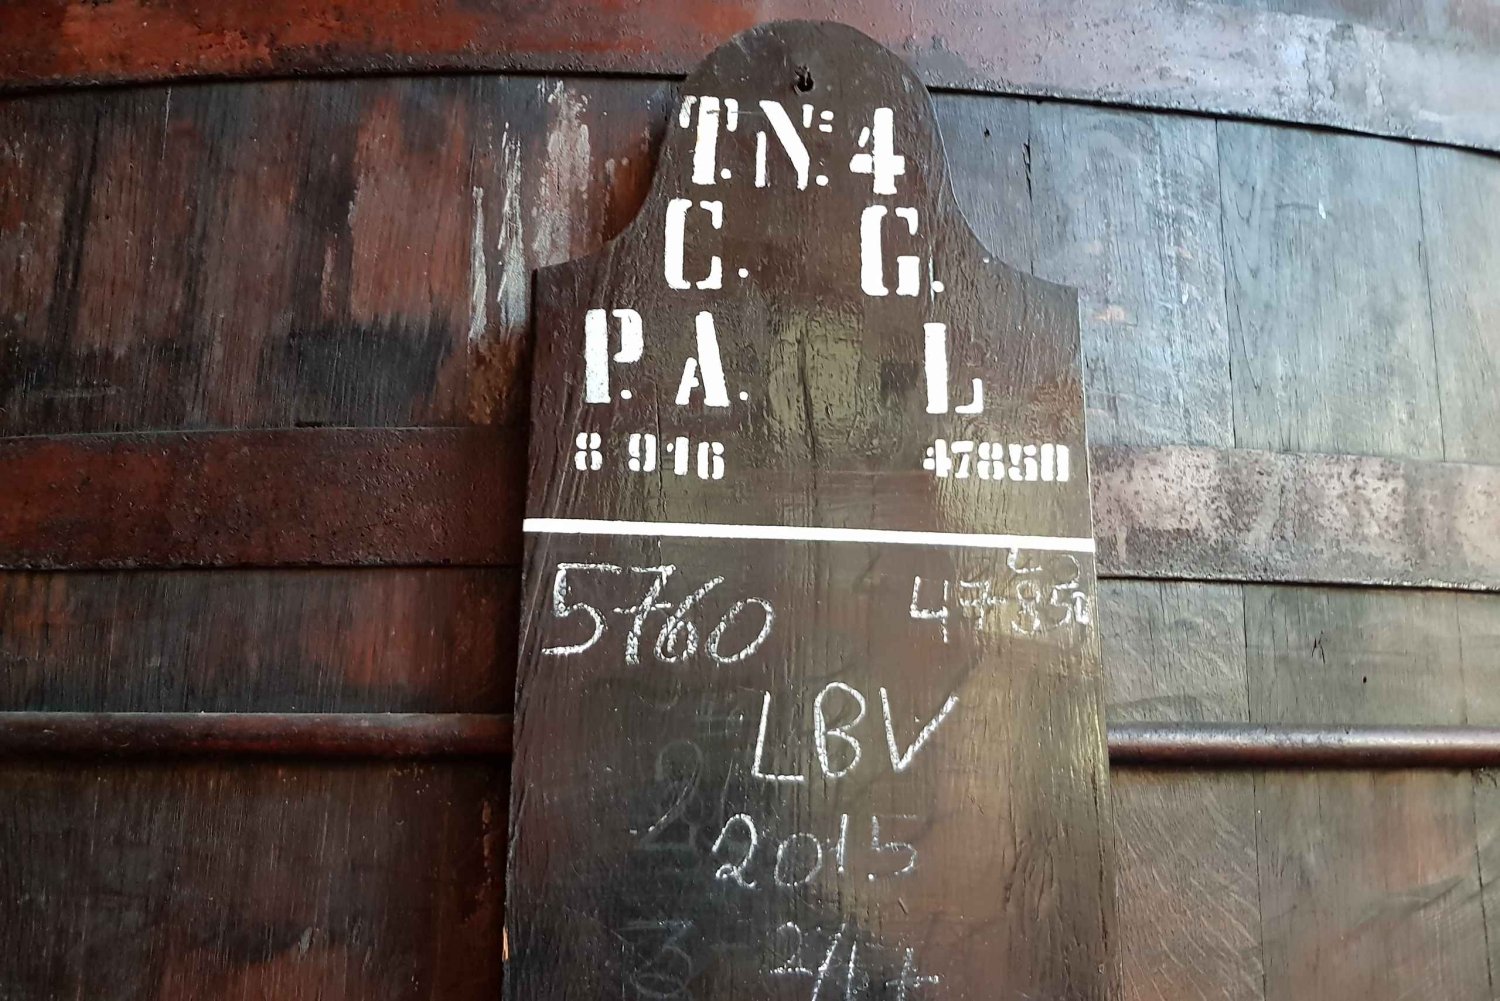 T. Nº. 4
C. G.
P. A. L
8 916 47850
5760 47850
LBV
2015